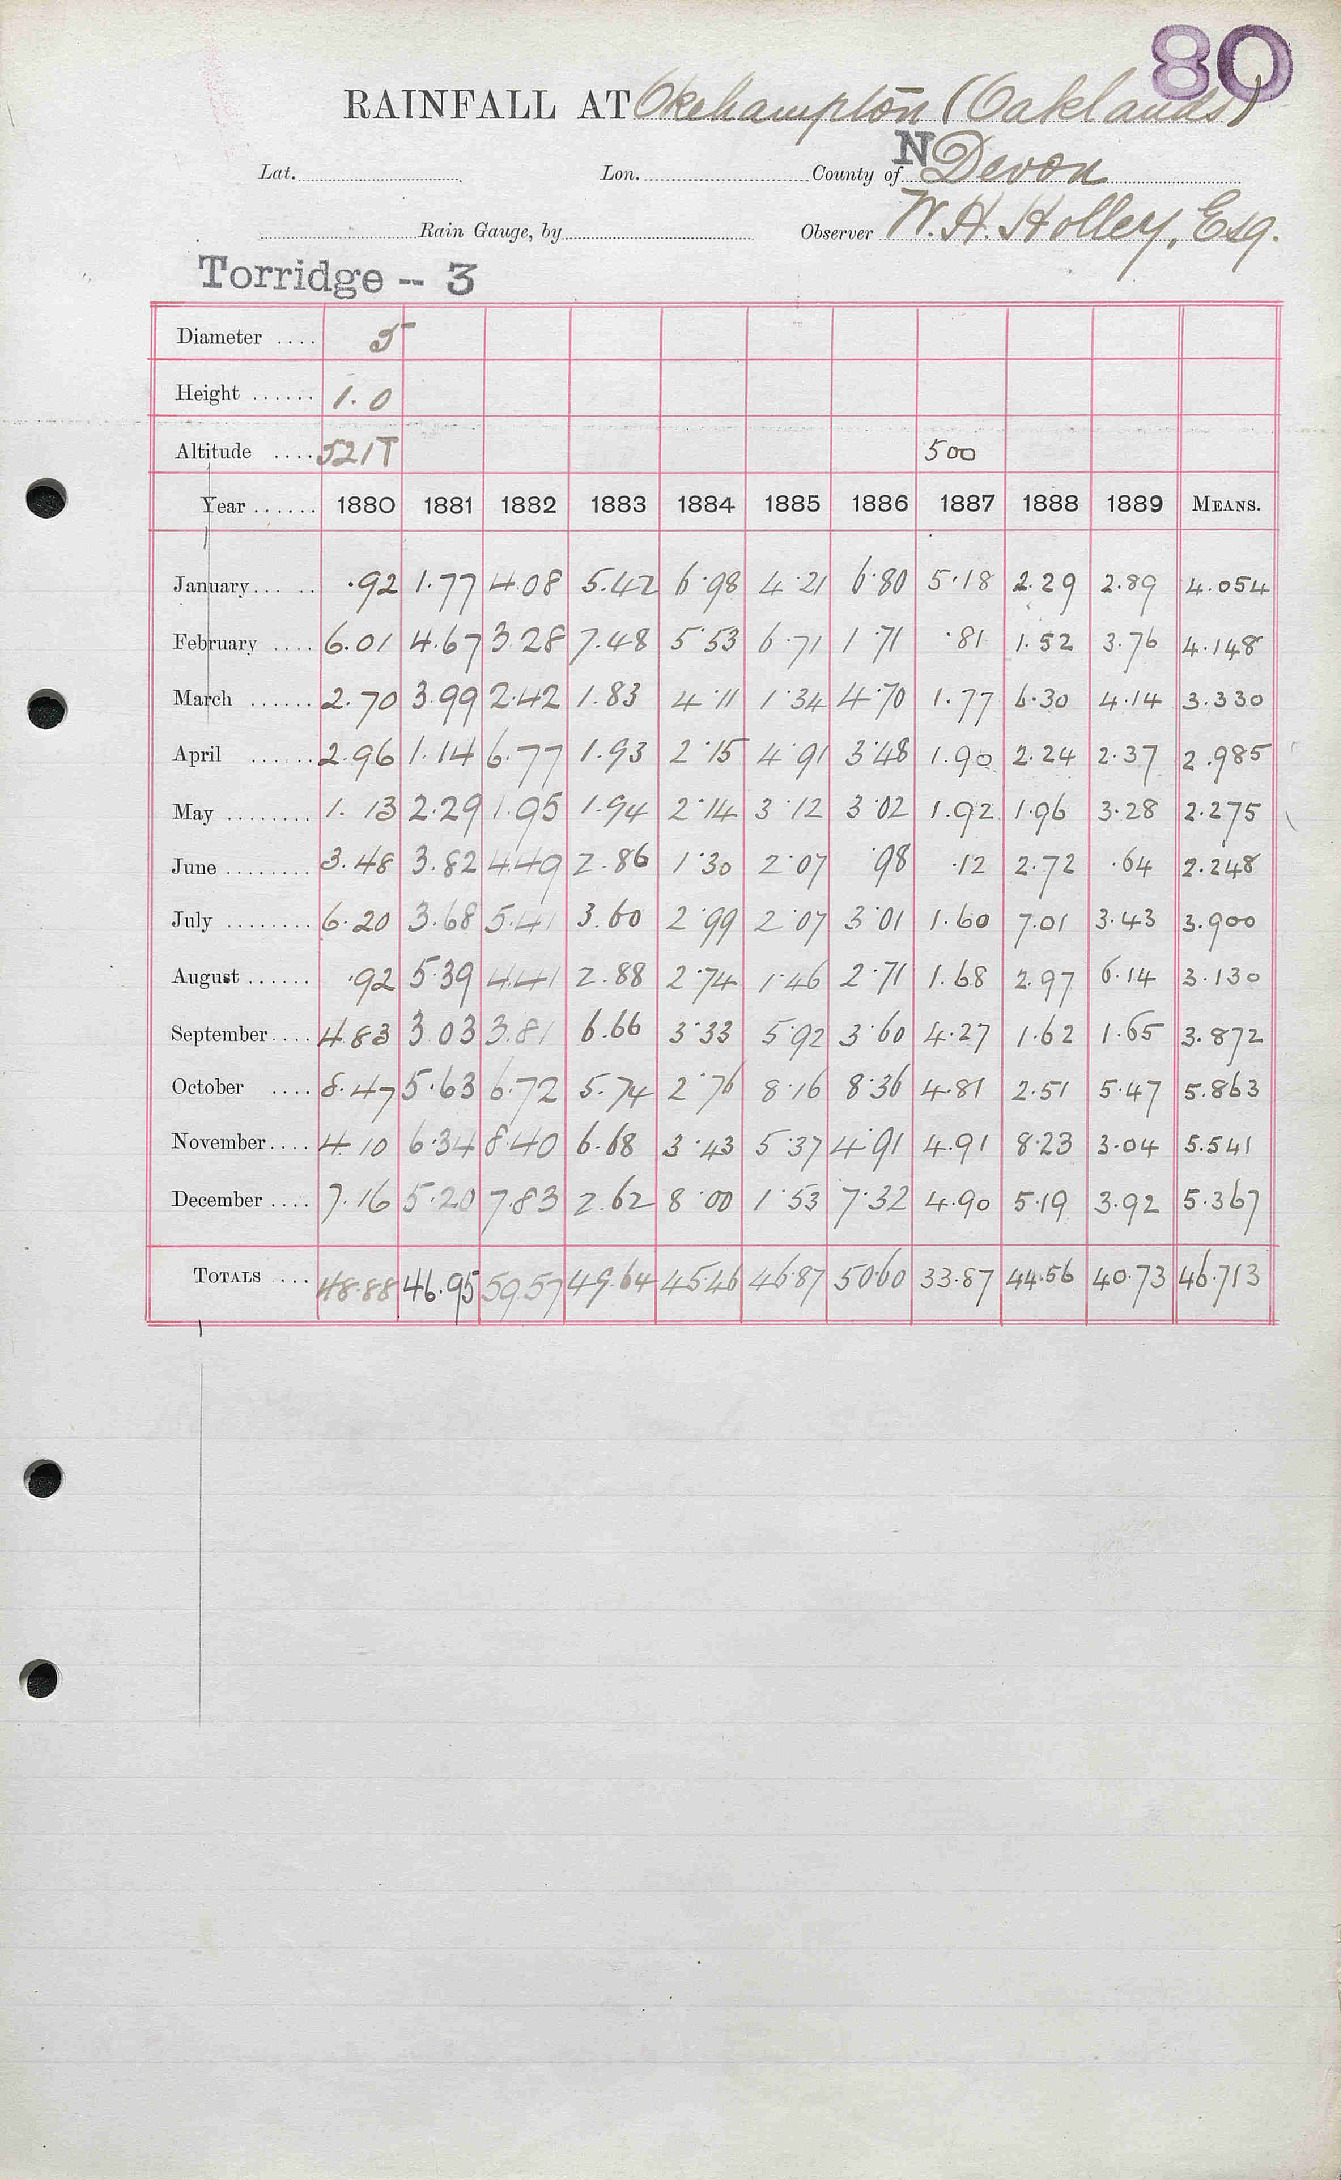 80
RAINFALL AT Okehampton (Oaklands)
Lat. Lon. County of N Devon
Rain Gauge, by Observer W. H. Holley, Esq.
Torridge -- 3
Diameter .... 5
Height ...... 1.0
Altitude .... 521T 500
Year ...... 1880 1881 1882 1883 1884 1885 1886 1887 1888 1889 MEANS.
January... .. .92 1.77 4.08 5.42 6.98 4.21 6.80 5.18 2.29 2.89 4.054
February .... 6.01 4.67 3.28 7.48 5.53 6.71 1.71 .81 1.52 3.76 4.148
March ...... 2.70 3.99 2.42 1.83 4.11 1.34 4.70 1.77 6.30 4.14 3.330
April ...... 2.96 1.14 6.77 1.93 2.15 4.91 3.48 1.90 2.24 2.37 2.985
May ........ 1.13 2.29 1.95 1.94 2.14 3.12 3.02 1.92 1.96 3.28 2.275
June ........ 3.48 3.82 4.49 2.86 1.30 2.07 .98 .12 2.72 .64 2.248
July ........ 6.20 3.68 5.41 3.60 2.99 2.07 3.01 1.60 7.01 3.43 3.900
August ...... .92 5.39 4.41 2.88 2.74 1.46 2.71 1.68 2.97 6.14 3.130
September.... 4.83 3.03 3.81 6.66 3.33 5.92 3.60 4.27 1.62 1.65 3.872
October .... 8.47 5.63 6.72 5.74 2.76 8.16 8.36 4.81 2.51 5.47 5.863
November.... 4.10 6.34 8.40 6.68 3.43 5.37 4.91 4.91 8.23 3.04 5.541
December .... 7.16 5.20 7.83 2.62 8.00 1.53 7.32 4.90 5.19 3.92 5.367
TOTALS ... 48.88 46.95 59.57 49.64 45.46 46.87 50.60 33.87 44.56 40.73 46.713